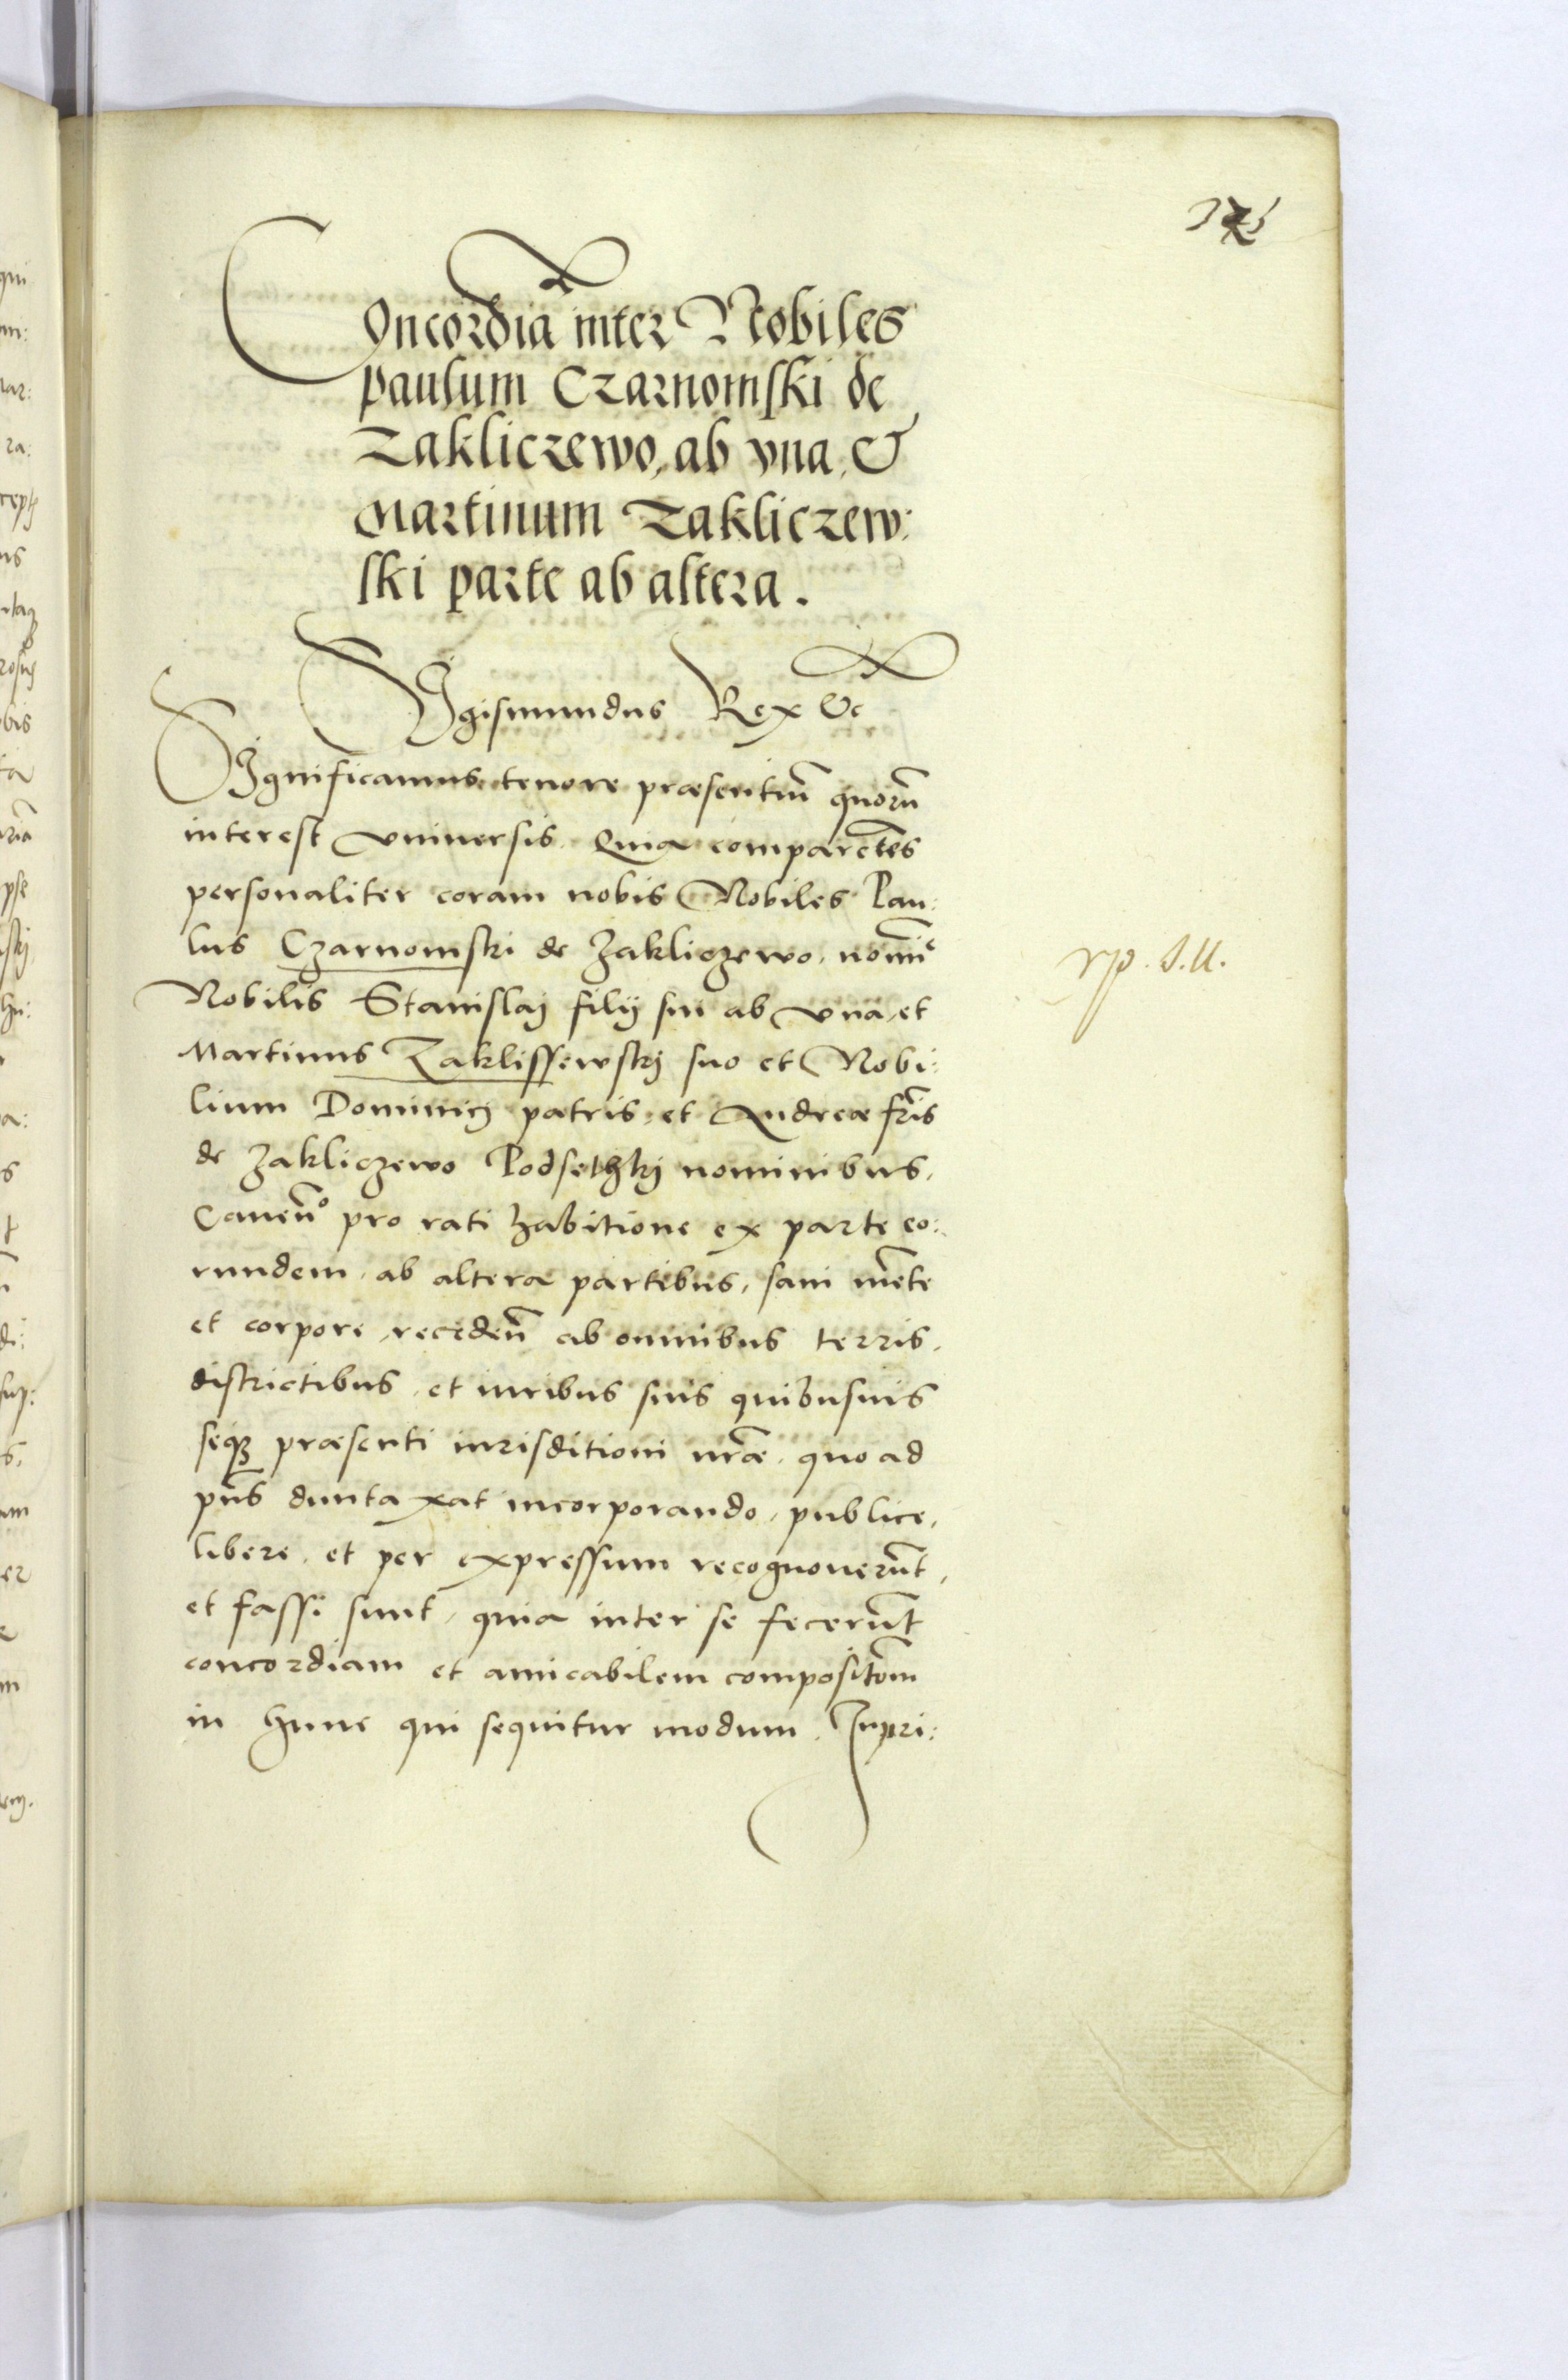 Concordia inter Nobiles
Paulum Czarnomski de
Zakliczewo, ab vna, &
Martinum Zakliczew:
ski parte ab altera.
Sigismundus Rex &c
Significamus tenore præsentiũ quorũ
interest vniuersis. Quia comparẽtes
personaliter coram nobis Nobiles Pau:
lus Czarnomski de Zakliczewo, nomĩe
Nobilis Stanislaj filij sui ab vna, et
Martinus Zaklissewskj suo et Nobi:
lium Dominici patris, et Andreæ fr̃is
de Zakliczewo Podsethkj nominibus,
Cauen̄o pro rati habitione ex parte eo:
rundem, ab altera partibus, sani mẽte
et corpore, receden̄ ab omnibus terris,
districtibus, et iuribus suis quibusuis
seqꝫ præsenti iurisditioni nr̃æ, quo ad
pñs duntaxat incorporando, publice,
libere, et per expressum recognouerũt,
et fassi sunt, quia inter se fecerũt
concordiam et amicabilem compositõm
in hunc qui sequitur modum. Inpri: